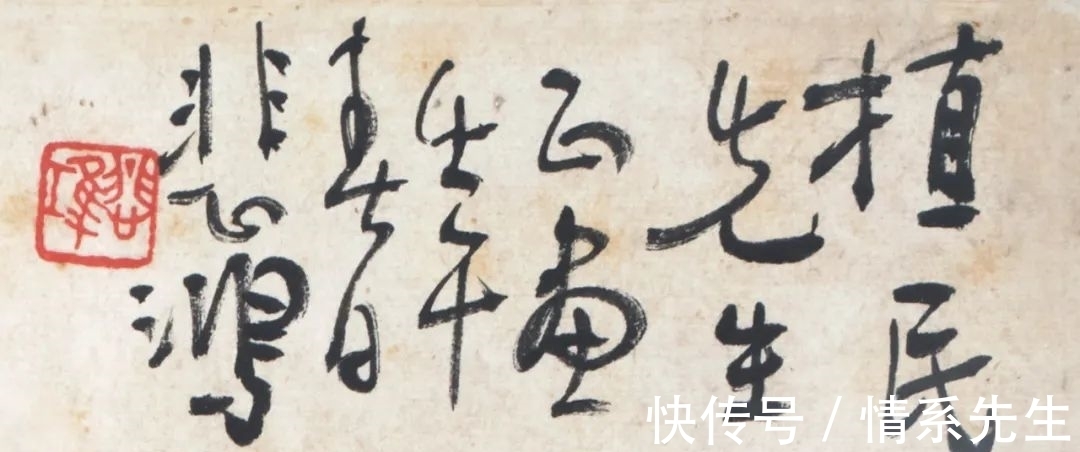 植民
先生
正畫
壬午
春日
悲鴻
快传号 / 情系先生